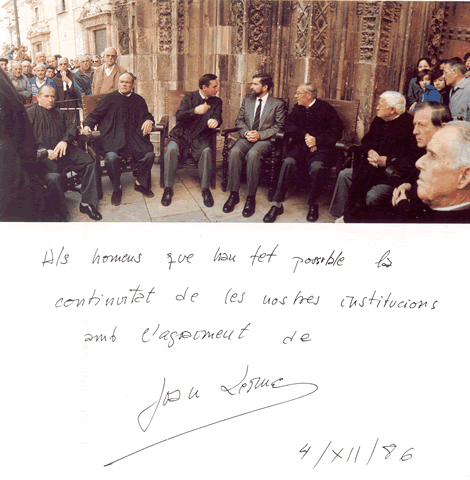 Als homens que han fet possible la
continuïtat de les nostres institucions
amb l'agraïment de
Joan Lerma
4/XII/86